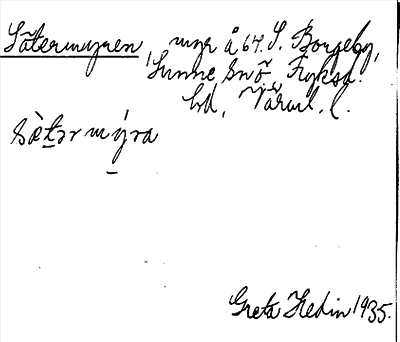 Sätermyren myr å 64. S. Borgeby,
Sunne snö Fryksd.
hd, Värml. l.
sètər mýra
Greta Hedin 1935.